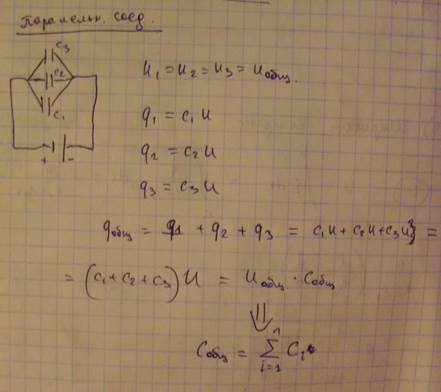 Паралельн. соед.
C3
C2
C1
+ -
U1 = U2 = U3 = Uобщ.
q1 = C1U
q2 = C2U
q3 = C3U
qобщ = q1 + q2 + q3 = C1U + C2U + C3U =
= (C1 + C2 + C3) U = Uобщ · Cобщ
⇓
Cобщ = ∑ⁿᵢ₌₁ Ci